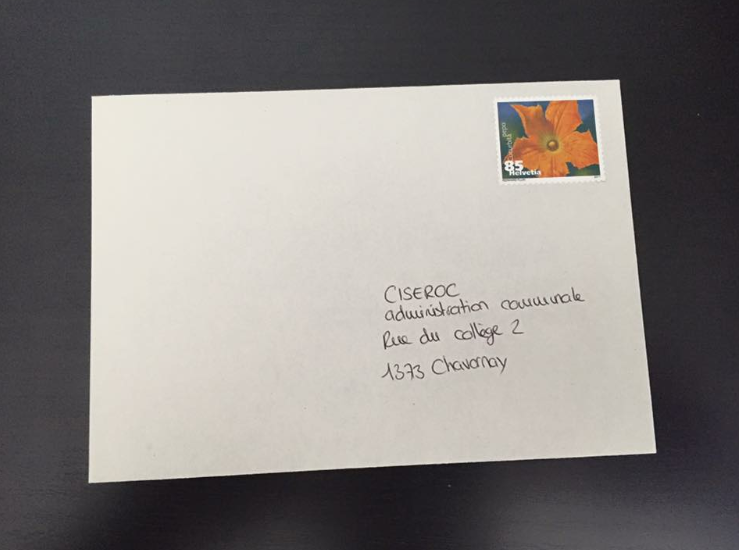 85
Helvetia
CISEROC
administration communale
Rue du collège 2
1373 Chavornay